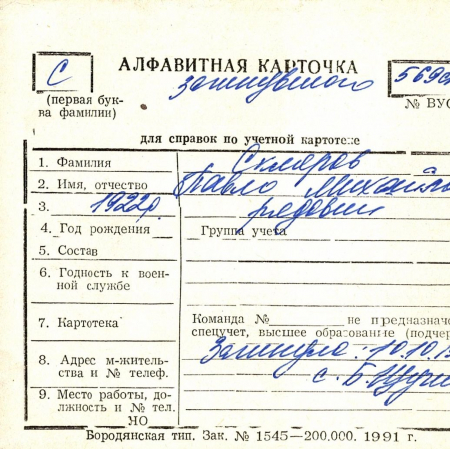 С АЛФАВИТНАЯ КАРТОЧКА
загинувшого
(первая бук-
ва фамилии)
№ ВУС
для справок по учетной картотеке
1. Фамилия Скляров
2. Имя, отчество Павло Михайло
3. 1922р. рядовий
4. Год рождения Группа учета
5. Состав
6. Годность к воен-
ной службе
7. Картотека Команда № не предназначе
спецучет, высшее образование (подчер
8. Адрес м-житель-
ства и № телеф.
Загинув 10.10.
9. Место работы, до-
лжность и № тел.
УНО
Бородянская тип. Зак. № 1545—200.000. 1991 г.